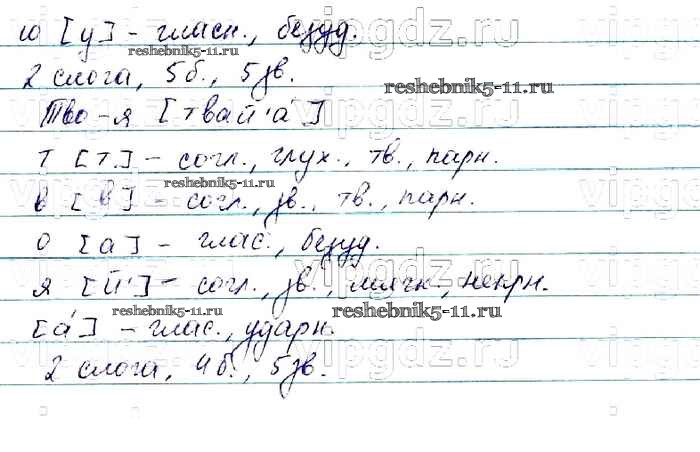 ю [у] - гласн., безуд.
reshebnik5-11.ru
2 слога, 5 б., 5 зв.
reshebnik5-11.ru
Тво-я [твай'а́]
т [т] - согл., глух., тв., парн.
reshebnik5-11.ru
в [в] - согл., зв., тв., парн.
о [а] - глас., безуд.
я [й'] - согл., зв., мягк., непрн.
reshebnik5-11.ru reshebnik5-11.ru
[а́] - глас., ударн.
2 слога, 4 б., 5 зв.
vipgdz.ru